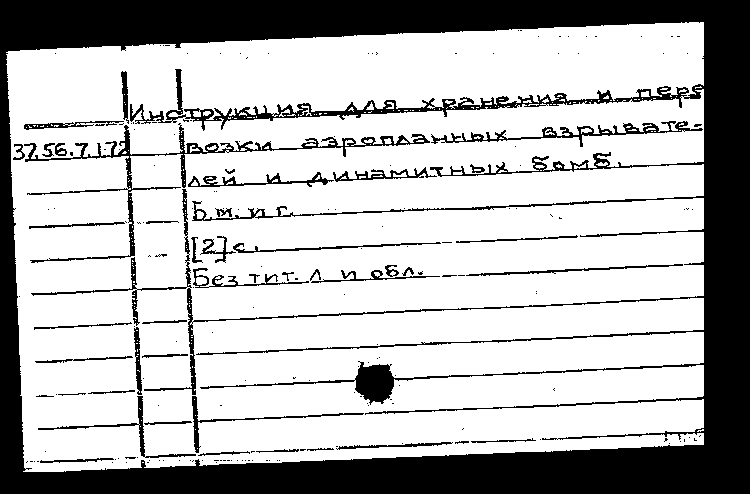 Инструкция для хранения и пере
37.56.7.1.72 возки аэропланных взрывате-
лей и динамитных бомб.
Б.м. и г.
[2] с.
Без тит. л и обл.